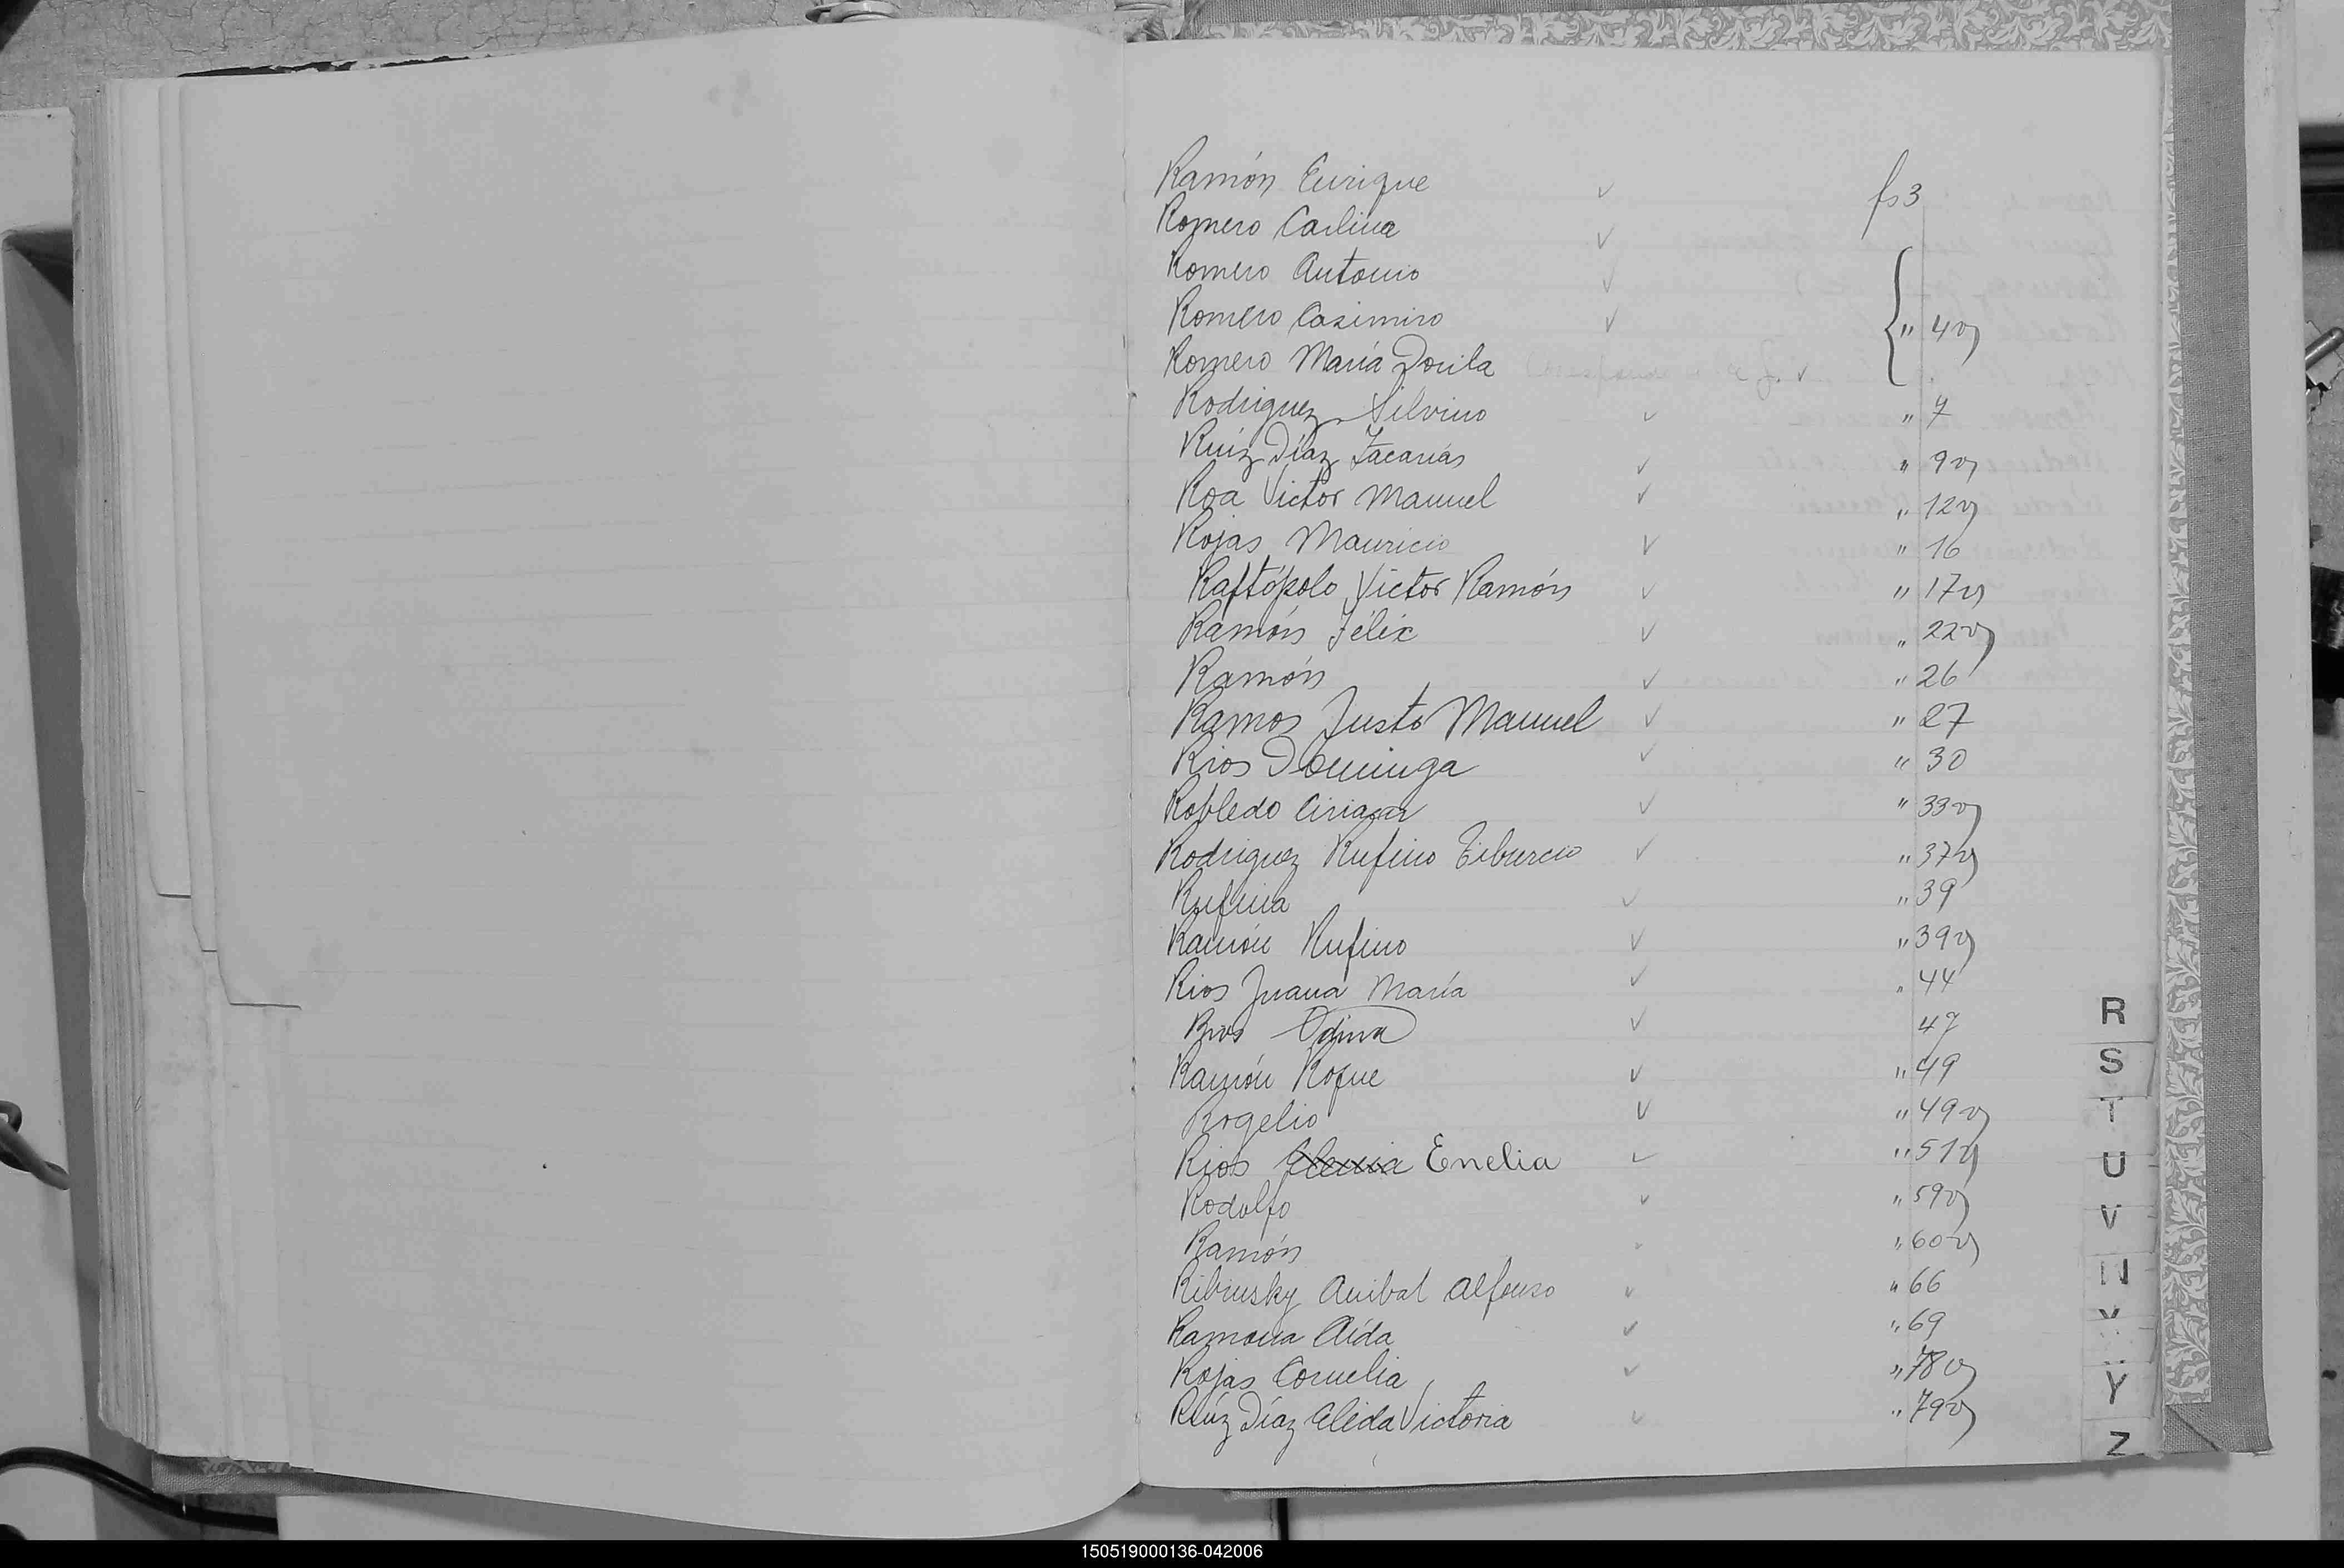 Ramón Enrique ✓ fs 3
Romero Carlina ✓
Romero Antonio ✓
Romero Casimiro ✓ { " 4v
Romero María Dorila ✓
Rodriguez Silvino ✓ " 7
Ruíz Díaz Zacarías ✓ " 9v
Roa Victor Manuel ✓ " 12v
Rojas Mauricio ✓ " 16
Raftópolo Victor Ramón ✓ " 17v
Ramón Félix ✓ " 22v
Ramón ✓ " 26
Ramos Justo Manuel ✓ " 27
Rios Dominga ✓ " 30
Robledo ✓ " 33v
Rodriguez Rufino Tiburcio ✓ " 37v
Rufina ✓ " 39
Ramón Rufino ✓ " 39v
Rios Juana María ✓ " 44
Rios ✓ 47
Ramón Roque ✓ " 49
Rogelio ✓ " 49v
Rios Enelia ✓ " 51v
Rodolfo ✓ " 59v
Ramón " 60v
Ribinsky Anibal Alfonso ✓ " 66
Ramona Aída ✓ " 69
Rojas Cornelia ✓ " 78v
Ruíz Díaz Aleida Victoria ✓ " 79v
R
S
T
U
V
Y
Z
150519000136-042006